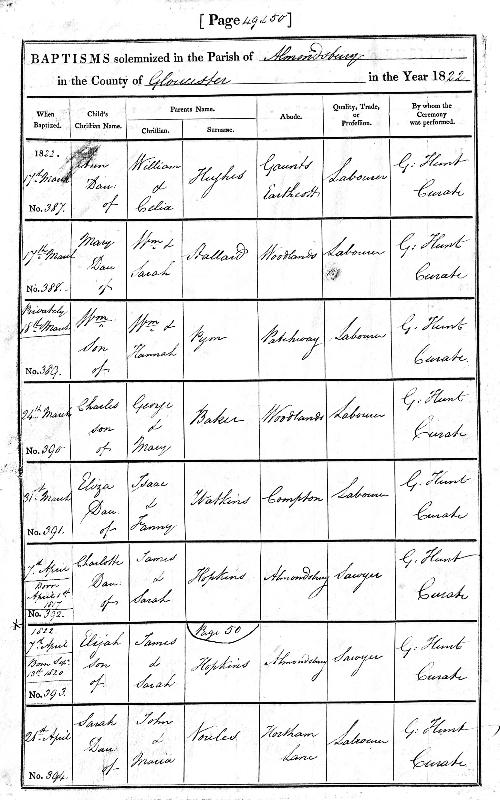 [ Page 49 & 50 ]
BAPTISMS solemnized in the Parish of Almondsbury
in the County of Gloucester in the Year 1822
When Baptized. Child's Christian Name. Parents Name. Abode. Quality, Trade, or Profession. By whom the Ceremony was performed.
Christian. Surname.
1822.
17th March
No. 387.
Ann
Dau.
of
William
&
Celia
Hughes
Gaunts
Earthcott
Labourer
G. Hunt
Curate
17th March
No. 388.
Mary
Dau
of
Wm &
Sarah
Ballard
Woodlands
Labourer
G. Hunt
Curate
Privately
18th March
No. 389.
Wm
Son
of
Wm &
Hannah
Pym
Patchway
Labourer
G. Hunt
Curate
24th March
No. 390
Charles
son
of
George
&
Mary
Baker
Woodlands
Labourer
G. Hunt
Curate
31st March
No. 391.
Eliza
Dau.
of
Isaac
&
Fanny
Watkins
Compton
Labourer
G. Hunt
Curate
7th April
Born
April 1st
1817
No. 392.
Charlotte
Dau.
of
James
&
Sarah
Hopkins
Almondsbury
Sawyer
G. Hunt
Curate
1822
7th April
Born Sep.
13th 1820
No. 393.
Elijah
son
of
James
&
Sarah
Page 50
Hopkins
Almondsbury
Sawyer
G. Hunt
Curate
28th April
No. 394.
Sarah
Dau
of
John
&
Maria
Nowles
Hortham
Lane
Labourer
G. Hunt
Curate